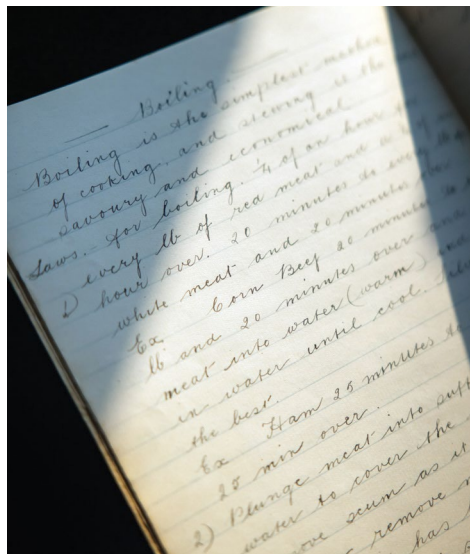 Boiling.
Boiling is the simplest method
of cooking, and stewing is the
savoury and economical
Laws. for boiling. ¼ of an hour for
every lb of red meat and a ¼ of
hour over. 20 minutes to every lb
white meat and 20 minutes
Ex Corn Beef 20 minutes to
lb and 20 minutes over and
meat into water (warm) and
in water until cool.
the best.
Ex Ham 25 minutes to
25 min over.
2) Plunge meat into
water to cover the
scum as it
remove
has